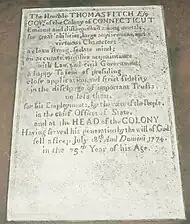 The Honble THOMAS FITCH Esqr
Govr of the Colony of CONNECTICUT
Eminent and distinguished among mortals
for great abilities, large acquirements, and a
virtuous Character;
a clear, strong, sedate mind;
an accurate, extensive acquaintance
with Law, and civil Government;
a happy Talent of presiding
close application, and strict fidelity
in the discharge of important Trusts;
no less than
for his Employments, by the voice of the People,
in the chief Offices of State,
and at the HEAD of the COLONY
Having served his generation, by the will of God
fell asleep, July 18th Anno Domini 1774
in the 75th Year of his Age.